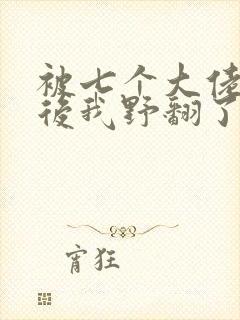 被七个大佬
後我野翻了
宵狂